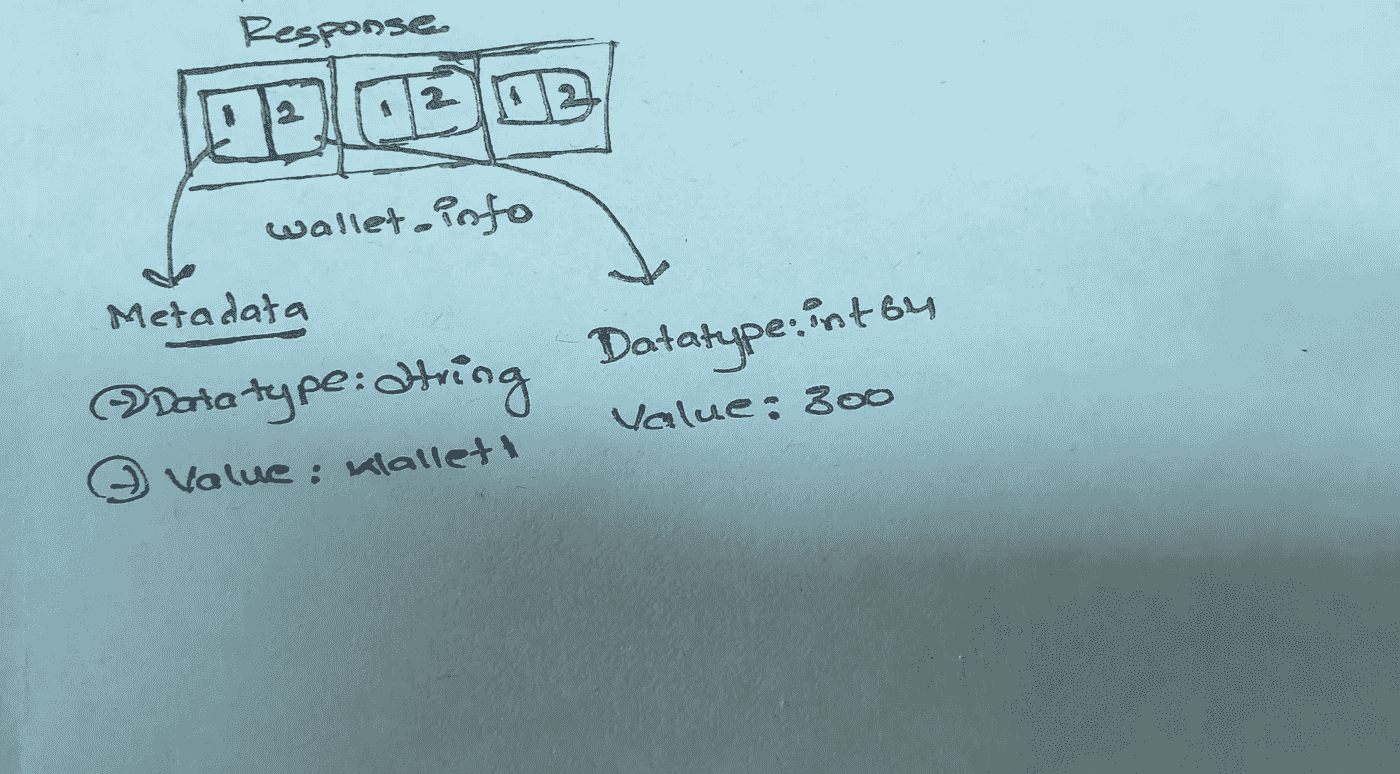 Response
1 2 1 2 1 2
wallet_info
Metadata
Datatype: string
Value: wallet1
Datatype: int64
Value: 300